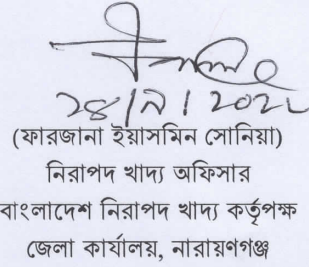 (ফারজানা ইয়াসমিন সোনিয়া)
নিরাপদ খাদ্য অফিসার
বাংলাদেশ নিরাপদ খাদ্য কর্তৃপক্ষ
জেলা কার্যালয়, নারায়ণগঞ্জ